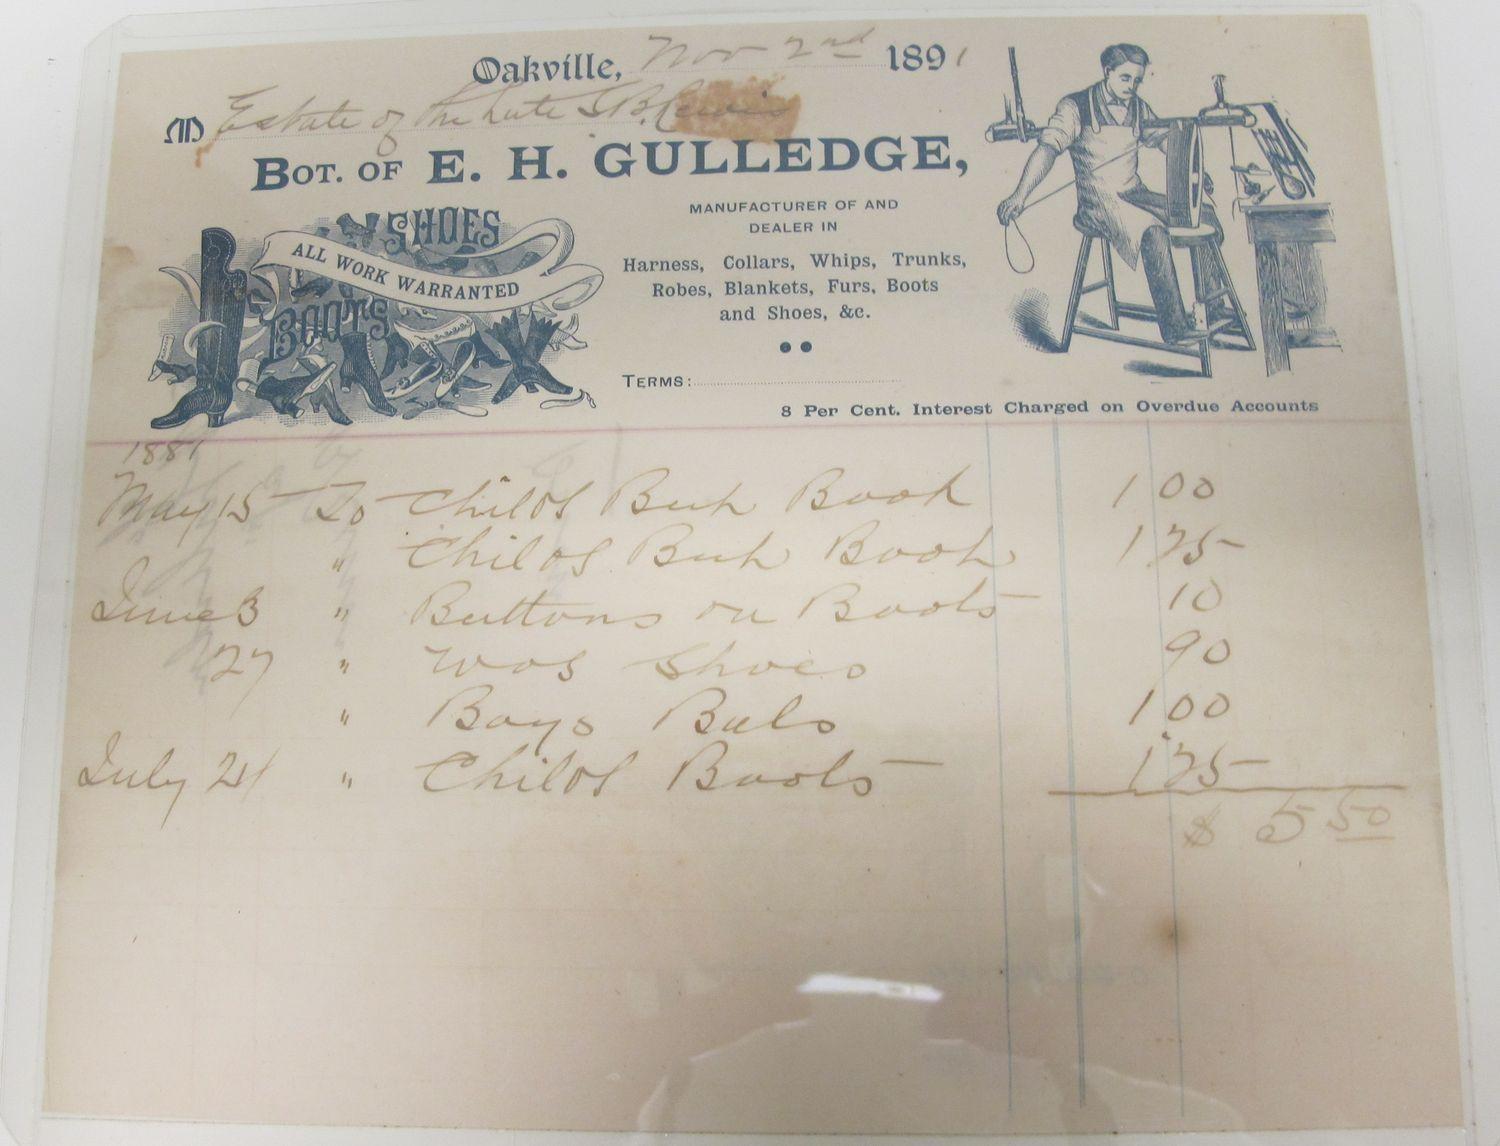 Oakville, Nov 2nd 1891
M Estate of the Late S B. Lewis
BOT. OF E. H. GULLEDGE,
MANUFACTURER OF AND
DEALER IN
Harness, Collars, Whips, Trunks,
Robes, Blankets, Furs, Boots
and Shoes, &c.
SHOES
ALL WORK WARRANTED
BOOTS
TERMS:
8 Per Cent. Interest Charged on Overdue Accounts
1881
May 15 To Childs Book 1 00
" Childs Book 1 75
June 3 " Buttons on Boots 10
27 " Shoes 90
" Boys Bals 1 00
July 21 " Childs Boots 1 75
$ 5 50